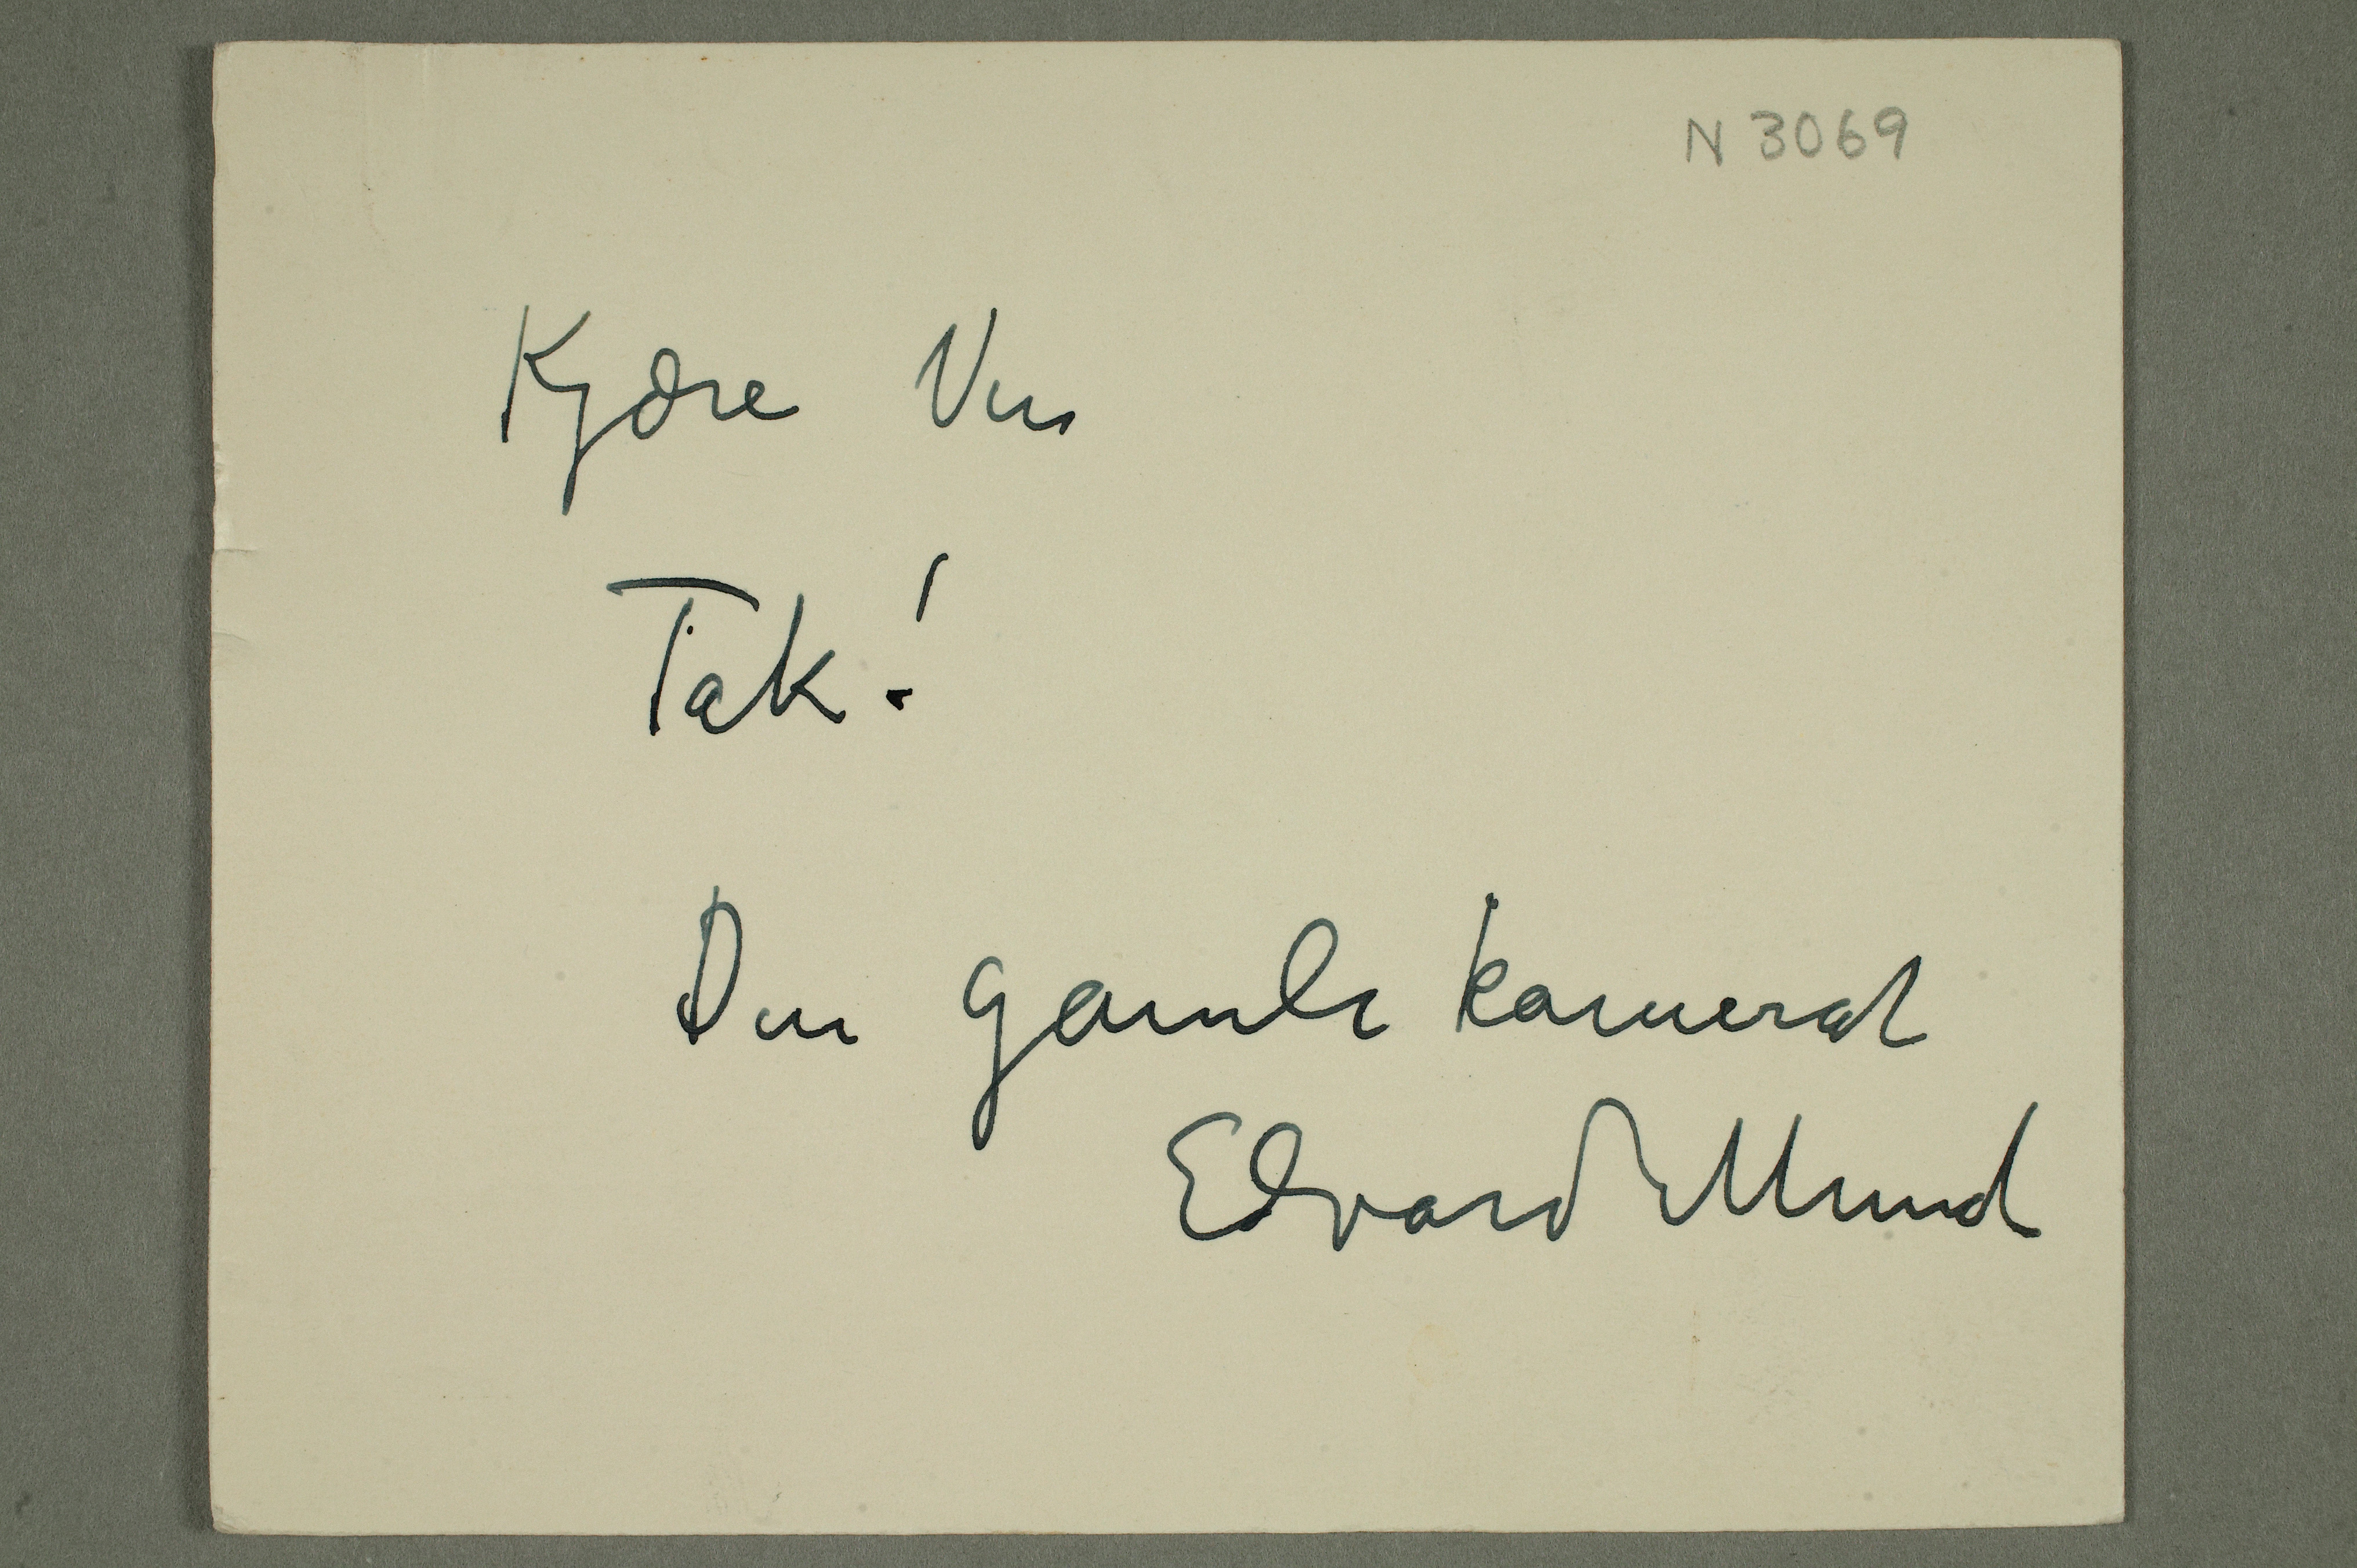 N 3069
Kjære Ven
Tak!
Din gamle kamerat
Edvard Munch